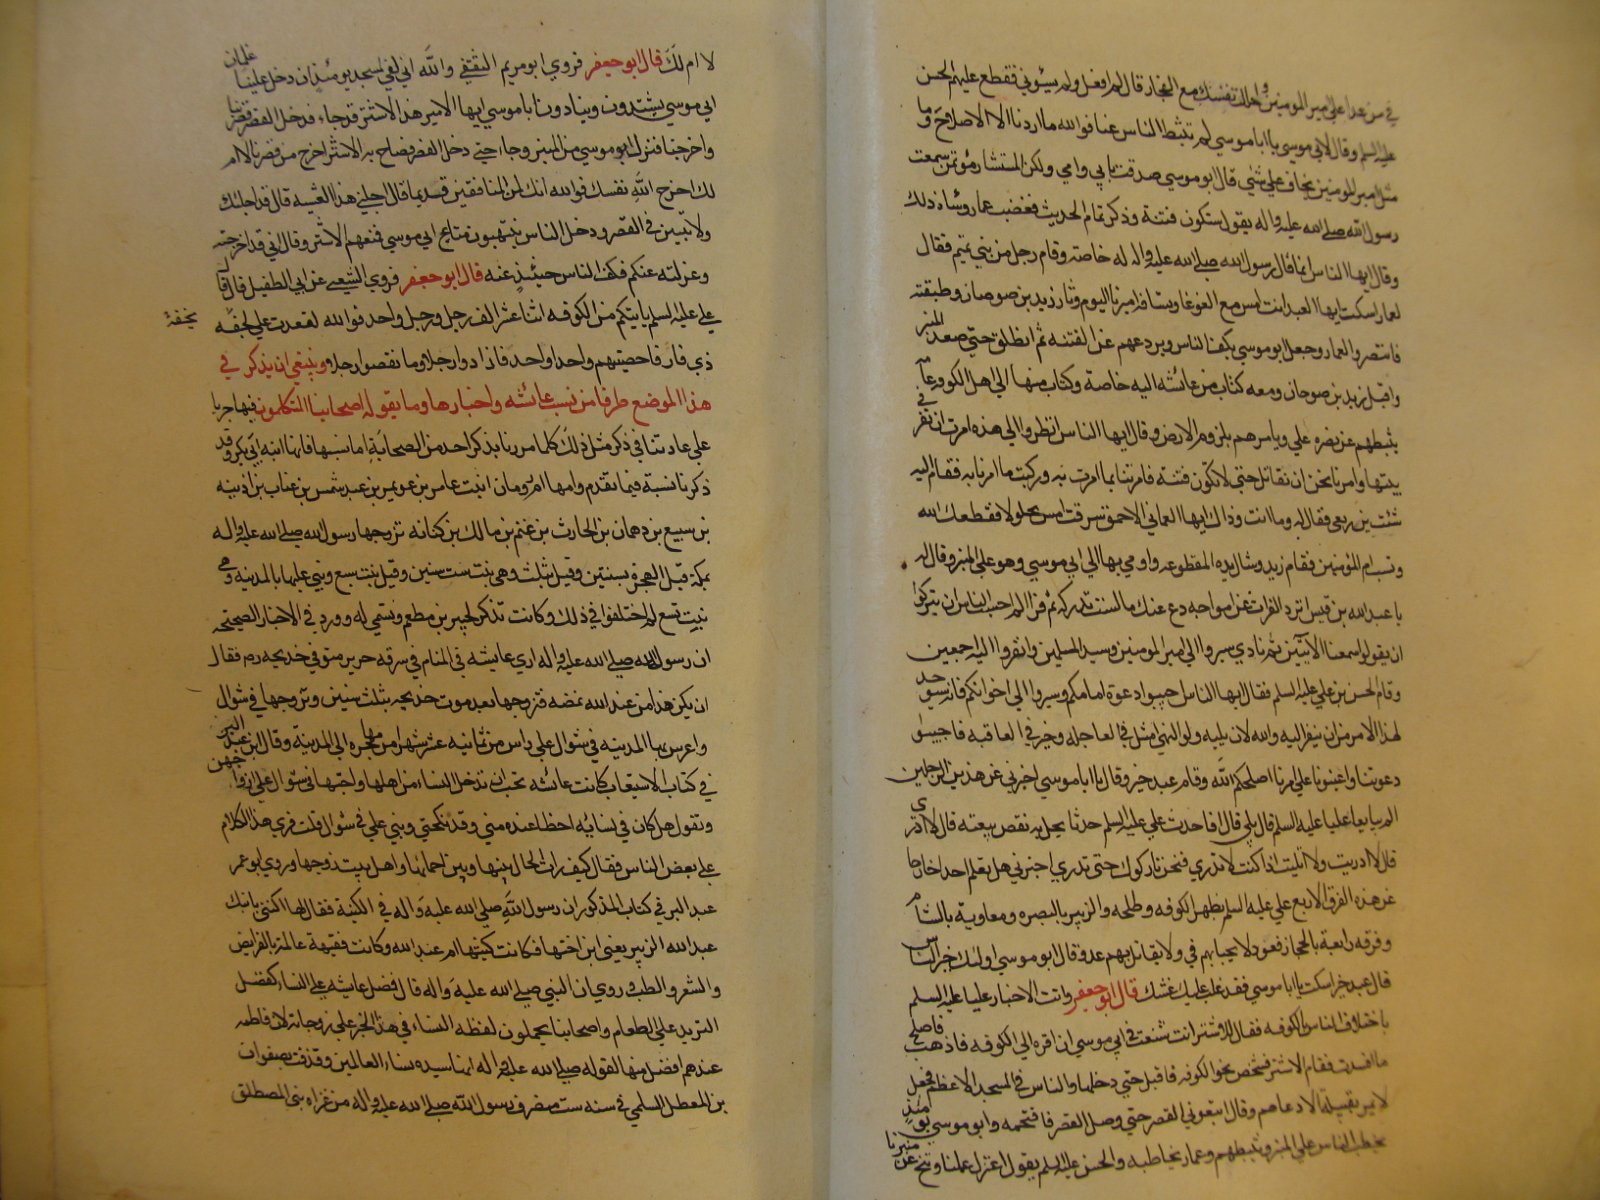 في من عدا على امير المومنين واحلك نفسك مع الفجار قال لم افعل ولم يسؤني فقطع عليهم الحسن
عليه السلم وقال لابي موسى يا ابا موسى لم تثبط الناس عنا فوالله ما اردنا الا الاصلاح وما
مثل امير المومنين يخاف على شئ قال ابو موسى صدقت بابي وامي ولكن المستشار مؤتمن سمعت
رسول الله صلى الله عليه واله يقول ستكون فتنة وذكر تمام الحديث فغضب عمار وساءه ذلك
وقال ايها الناس انما قال رسول الله صلى الله عليه واله له خاصة وقام رجل من بني تميم فقال
لعمار اسكت ايها العبد انت امس مع الغوغا وتسافه اميرنا اليوم وثار زيد بن صوحان وطبقته
فانتصروا لعمار وجعل ابو موسى يكف الناس ويردعهم عن الفتنه ثم انطلق حتى صعد المنبر
واقبل زيد بن صوحان ومعه كتاب من عائشه اليه خاصة وكتاب منها الى اهل الكوفه عامة
يثبطهم عن نصره علي ويامرهم بلزوم الارض وقال ايها الناس انظروا الى هذه امرت ان تقر في
بيتها وامرنا نحن ان نقاتل حتى لا تكون فتنة فامرتنا بما امرت به وركبت ما امرنا به فقام اليه
شبث بن ربعي فقال له وما انت وذاك ايها العماني الاحمق سرقت امس بجلولا فقطعك الله
وتسب ام المؤمنين فقام زيد وشال يده المقطوعه واومى بها الى ابي موسى وهو على المنبر وقال له
يا عبد الله بن قيس اترد الفرات عن امواجه دع عنك ما لست تدركه ثم قرا الم احسب الناس ان يتركوا
ان يقولوا سمعنا الايتين ثم نادى سيروا الى امير المومنين وسيد المسلمين وانفروا اليه اجمعين
وقام الحسن بن علي عليه السلم فقال ايها الناس اجيبوا دعوة امامكم وسيروا الى اخوانكم فانه سيوجد
لهذا الامر من ينفر اليه والله لان يليه اولوا النهى امثل في العاجله وخير في العاقبه فاجيبوا
دعوتنا واعينونا على امرنا اصلحكم الله وقام عبد خير وقال يا ابا موسى اخبرني عن هذين الرجلين
الم يبايعا عليا عليه السلم قال بلى قال افاحدث علي عليه السلم حدثا يحل به نقض بيعته قال لا ادري
قال لا دريت ولا اتليت اذا كنت لا تدري فنحن تاركوك حتى تدري اخبرني هل تعلم احدا خارجا
عن هذه الفرق الاربع علي عليه السلم بظهر الكوفه وطلحه والزبير بالبصره ومعاوية بالشام
وفرقه رابعة بالحجاز قعود لا يجبا بهم في ولا يقاتل بهم عدو قال ابو موسى اولئك خير الناس
قال عبد خير اسكت يا ابا موسى فقد غلب عليك غشك قال ابو جعفر واتت الاخبار عليا عليه السلم
باختلاف الناس بالكوفه فقال للاشتر انت شفعت في ابي موسى ان اقره الى الكوفه فاذهب فاصلح
ما افسدت فقام الاشتر فشخص نحو الكوفه فاقبل حتى دخلها والناس في المسجد الاعظم فجعل
لا يمر بقبيلة الا دعاهم وقال اتبعوني الى القصر حتى وصل القصر فاقتحمه وابو موسى يومئذ
يخطب الناس على المنبر ويثبطهم وعمار يخاطبه والحسن عليه السلم يقول اعتزل عملنا وتنح عن منبرنا
لا ام لك قال ابو جعفر فروى ابو مريم الثقفي والله اني لفي المسجد يومئذ ان دخل علينا غلمان
ابي موسى يشتدون وينادون ابا موسى ايها الامير هذا الاشتر قد جاء فدخل القصر فضربنا
واخرجنا فنزل ابو موسى من المنبر وجاء حتى دخل القصر فصاح به الاشتر اخرج من قصرنا لا ام
لك اخرج الله نفسك فوالله انك لمن المنافقين قديما قال اجلني هذا العشيه قال قد اجلتك
ولا تبيتن في القصر ودخل الناس ينتهبون متاع ابي موسى فمنعهم الاشتر وقال اني قد اخرجته
وعزلته عنكم فكف الناس حينئذ عنه قال ابو جعفر فروى الشعبي عن ابي الطفيل قال قال
علي عليه السلم ياتيكم من الكوفه اثنا عشر الف رجل ورجل واحد فوالله لقعدت على لجفة
نجفة
ذي قار فاحصيتهم واحدا واحدا فما زادوا رجلا وما نقصوا رجلا وينبغي ان يذكر في
هذا الموضع طرفا من نسب عائشه واخبارها وما يقوله اصحابنا المتكلمون فيها جريا
على عادتنا في ذكر مثل ذلك كلما مررنا بذكر احد من الصحابة اما نسبها فانها ابنة ابي بكر وقد
ذكرنا نسبة فيما تقدم وامها ام رومان ابنت عامر بن عويمر بن عبد شمس بن عتاب بن اذينه
بن سبيع بن دهمان بن الحارث بن غنم بن مالك بن كنانه تزوجها رسول الله صلى الله عليه واله
بمكة قبل الهجرة بسنتين وقيل بثلث وهي بنت ست سنين وقيل بنت سبع وبنى عليها بالمدينه وهي
بنت تسع لم يختلفوا في ذلك وكانت تذكر لجبير بن مطعم وتسمى له وورد في الاخبار الصحيحه
ان رسول الله صلى الله عليه واله اري عايشه في المنام في سرقه حرير متوفي خديجه رض فقال
ان يكن هذا من عند الله يمضه فتزوجها بعد موت خديجه بثلث سنين وتزوجها في شوال
واعرس بها المدينه في شوال على راس من ثمانيه عشر شهرا من مهاجره الى المدينه وقال ابن عبد البر
في كتاب الاستيعاب كانت عائشه تحب ان تدخل النساء من اهلها واحبتها في شوال على ازواجهن
وتقول هل كان في نسايه احظا عنده مني وقد نكحني وبنى علي في شوال قلت قري هذا الكلام
على بعض الناس فقال كيف رات الحال بينها وبين احمائها واهل بيت زوجها وروى ابو عمر
عبد البر في كتاب المذكور ان رسول الله صلى الله عليه واله في الكنية فقال لها اكتني بابنك
عبد الله الزبير يعني ابن اختها فكانت كنيتها ام عبد الله وكانت فقيهة عالمة بالفرايض
والشعر والطب وروي ان النبي صلى الله عليه واله قال فضل عايشه على النساء كفضل
الثريد على الطعام واصحابنا يحملون لفظه النساء في هذا الخبر على زوجاته لان فاطمه
عندهم افضل منها لقوله صلى الله عليه واله انها سيده نساء العالمين وقذفت بصفوان
بن المعطل السلمي في سنه ست منصرف رسول الله صلى الله عليه واله من غزاه بني المصطلق